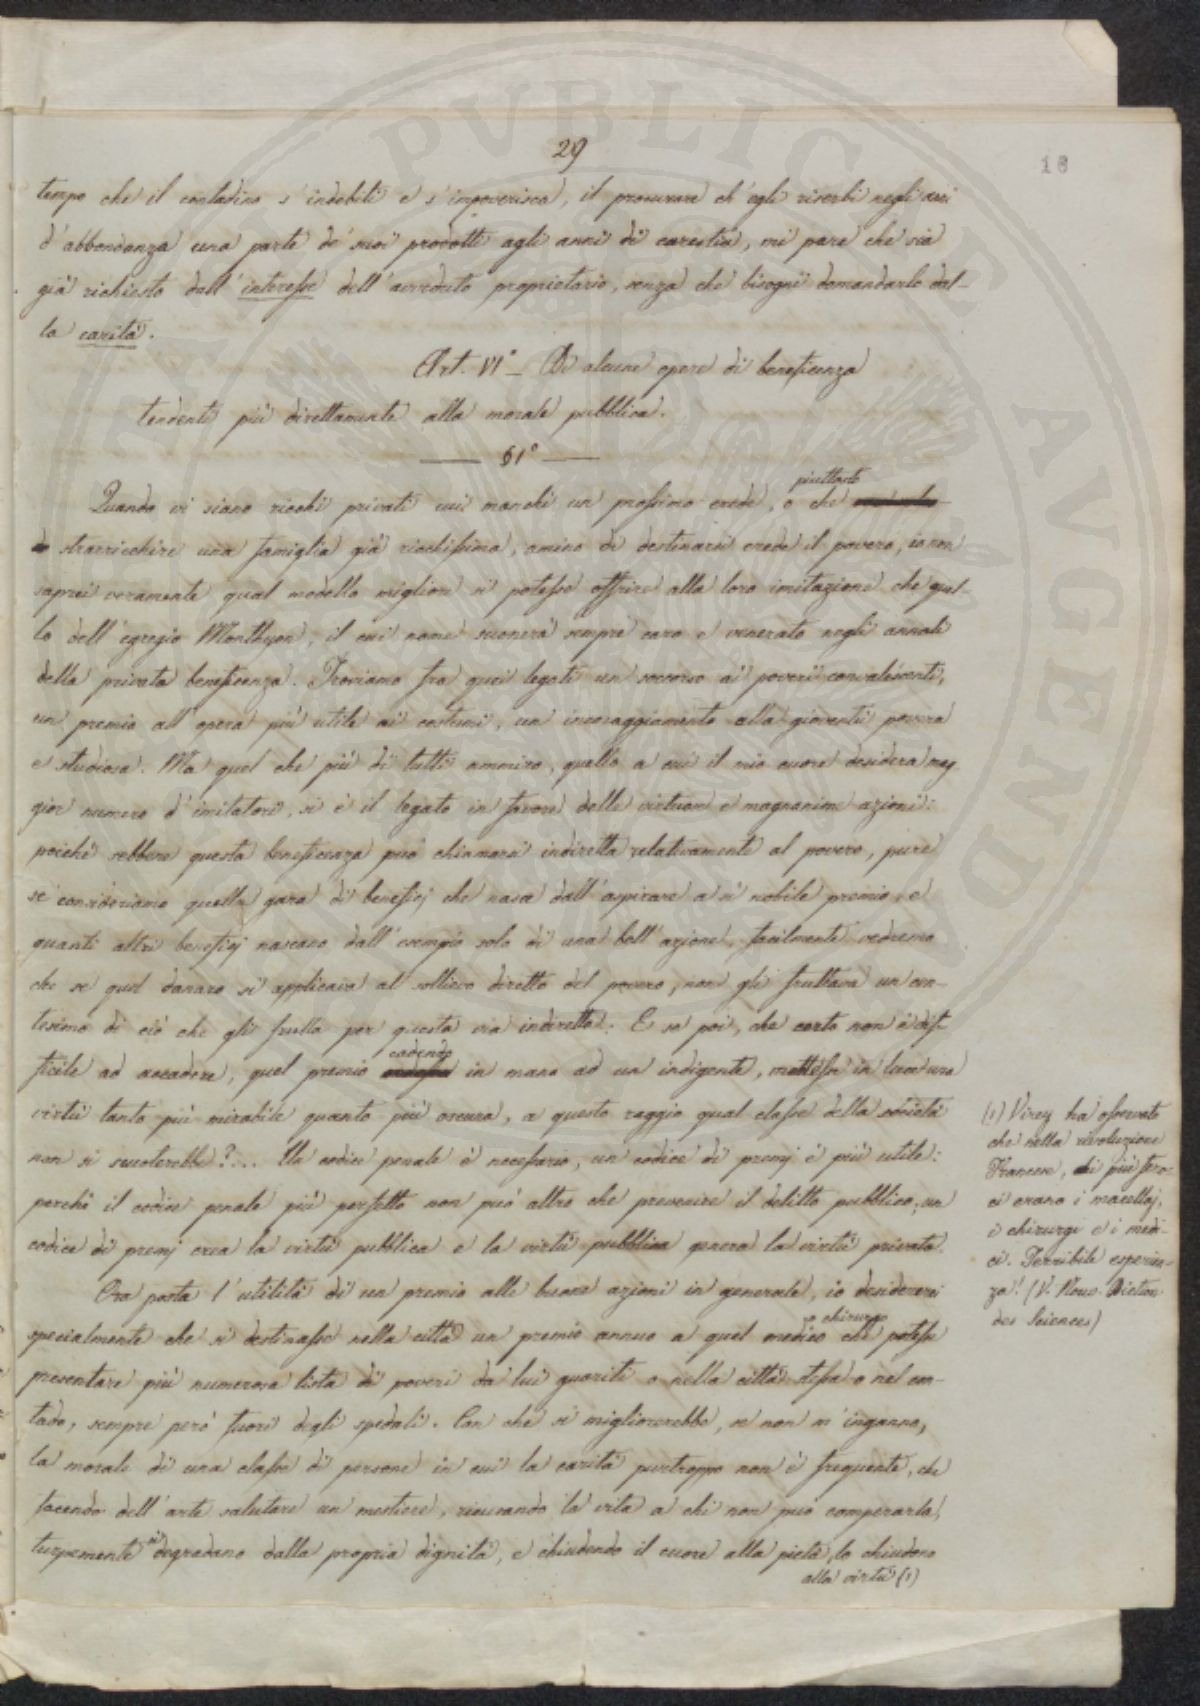 29
18
tempo che il contadino s'indebiti e s'impoverisca, il procurare ch'egli riserbi negli anni
d'abbondanza una parte de' suoi prodotti agli anni di carestia, mi pare che sia
già richiesto dall'interesse dell'avveduto proprietario, senza che bisogni domandarlo dal-
la carità.
Art. VI° - Di alcune opere di beneficenza
tendenti più direttamente alla morale pubblica.
§1°
piuttosto
Quando vi siano ricchi privati cui manchi un prossimo erede, o che
strarricchire una famiglia già ricchissima, amino di destinarsi erede il povero, io non
saprei veramente qual modello migliore si potesse offrire alla loro imitazione che quel-
lo dell'egregio Monthyon, il cui nome suonerà sempre caro e venerato negli annali
della privata beneficenza. Troviamo fra quei legati un soccorso ai poveri convalescenti,
un premio all'opera più utile ai costumi, un incoraggiamento alla gioventù povera
e studiosa. Ma quel che più di tutti ammiro, quello a cui il mio cuore desidera mag-
gior numero d'imitatori, si è il legato in favore delle virtuose e magnanime azioni:
poiché sebbene questa beneficenza può chiamarsi indiretta relativamente al povero, pure
se consideriamo quella gara di beneficj che nasce dall'aspirare a sì nobile premio, e
quanti altri beneficj nascano dall'esempio solo di una bell'azione, facilmente vedremo
che se quel danaro si applicava al sollievo diretto del povero, non gli fruttava un cen-
tesimo di ciò che gli frutta per questa via indiretta. E se poi, che certo non è dif-
cadendo
ficile ad accadere, quel premio in mano ad un indigente, mettesse in luce una
virtù tanto più mirabile quanto più oscura, a questo raggio qual classe della società
non si scuoterebbe?... Un codice penale è necessario, un codice di premj è più utile:
perché il codice penale più perfetto non può altro che prevenire il delitto pubblico, un
codice di premj crea la virtù pubblica e la virtù pubblica genera la virtù privata.
Ora posta l'utilità di un premio alle buone azioni in generale, io desidererei
o chirurgo
specialmente che si destinasse nella città un premio annuo a quel medico che potesse
presentare più numerosa lista di poveri da lui guariti o nella città stessa o nel con-
tado, sempre però fuori degli spedali. Con che si migliorerebbe, se non m'inganno,
la morale di una classe di persone in cui la carità purtroppo non è frequente, che
facendo dell'arte salutare un mestiere, ricusando la vita a chi non può comperarla,
turpemente si degradano dalla propria dignità, e chiudendo il cuore alla pietà, lo chiudono
alla virtù (1)
(1) Virey ha osservato
che nella rivoluzione
Francese, i più fero-
ci erano i macellaj,
i chirurgi e i medi-
ci. Terribile esperien-
za! (V. Nouv. Diction.
des Sciences)
PVBLICAE
AVGENDAE